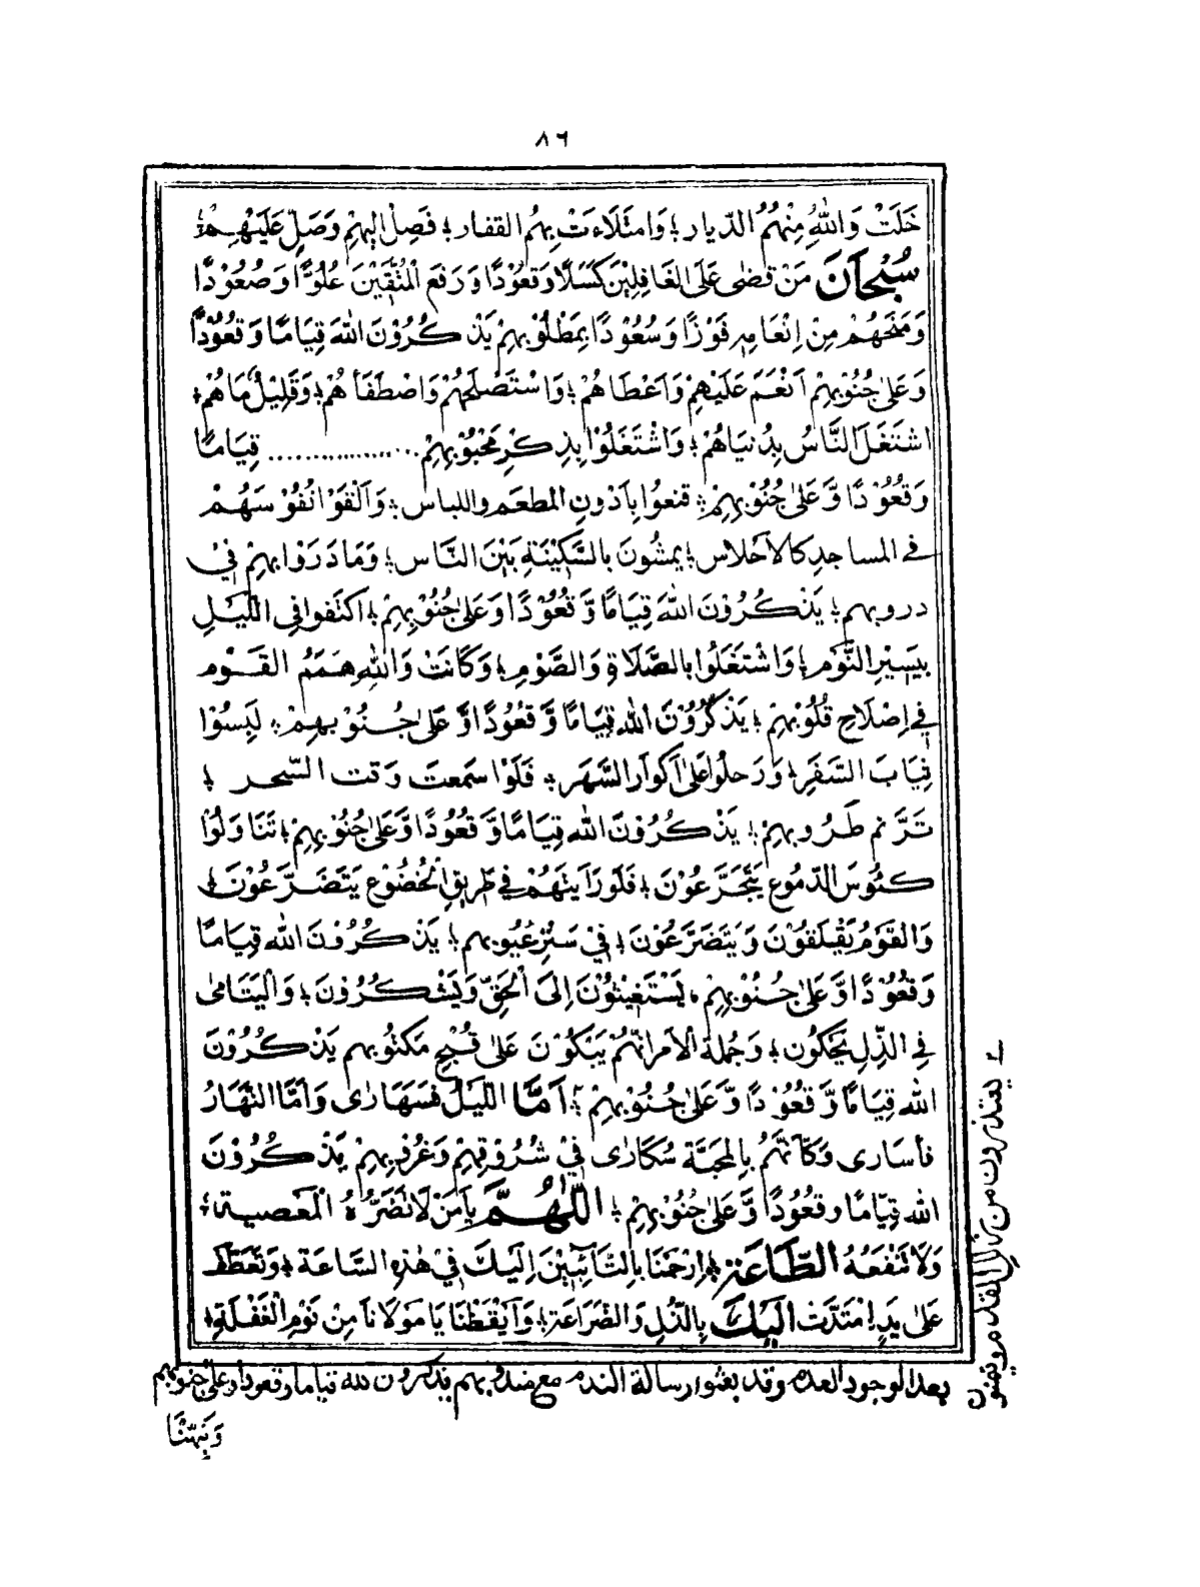 ٨٦
خَلَتْ وَاللّٰهِ مِنْهُمُ الدّيار ؛ وَامتَلَاءَتْ بِهِمُ القفار ؛ فَصِلْ اِلَيْهِمْ وَصَلِّ عَلَيْهِمْ ؛
سُبْحَانَ مَنْ قَضٰى عَلَى الغَافِلِيْنَ كَسَلًا وَقُعُوْدًا وَرَفَعَ الْمُتَّقِيْنَ عُلُوًّا وَصُعُوْدًا
وَمَنَحَهُمْ مِنْ اِنْعَامِهٖ فَوْزًا وَسُعُوْدًا بِمَطْلُوْبِهِمْ يَذْكُرُوْنَ اللّٰهَ قِيَامًا وَقُعُوْدًا
وَعَلٰى جُنُوْبِهِمْ اَنْعَمَ عَلَيْهِمْ وَاَعْطَاهُمْ ؛ وَاسْتَصْلَحَهُمْ وَاصْطَفَاهُمْ ؛ وَقَلِيْلٌ مَاهُمْ ؛
اشتَغَلَ النَّاسُ بِدُنيَاهُمْ ؛ وَاشْتَغَلُوْا بِذِكْرِ مَحْبُوْبِهِمْ .................. قِيَامًا
وَقُعُوْدًا وَّعَلٰى جُنُوْبِهِمْ ؛ قنعوُا بِاَدْونِ المطعَم واللباس ؛ وَاَلْقَوْا نُفُوْسَهُمْ
في المساجدِ كالاَحْلاس ؛ يمشُونَ بالسَّكِيْنَةِ بَيْنَ النَّاس ؛ وَمَا دَرَوْا بهِمْ فِيْ
دروبهم ؛ يَذْكُرُوْنَ اللّٰهَ قِيَامًا وَّقُعُوْدًا وَعَلٰى جُنُوْبِهِمْ ؛ اكتَفوا فِى اللَّيْلِ
بيَسِيْرِ النَّوْم ؛ وَاشْتَغَلُوا بالصَّلَاةِ وَالصَّوْمِ ؛ وَكَانَتْ وَاللّٰهِ هِمَمُ القَوْم
فِي اِصْلَاحِ قُلُوْبِهِمْ ؛ يَذْكُرُوْنَ اللّٰهَ قِيَامًا وَّقُعُوْدًا وَّ عَلٰى جُنُوْبِهِمْ ؛ لَبِسُوْا
ثِيَابَ السَّفَرِ ؛ وَرَحلُوا عَلٰى اَكوارِ السَّهَرِ ؛ فَلَوْا سَمعتَ وَقت السّحر ؛
تَرَنم طَرُوبهِمْ ؛ يَذْكُرُوْنَ اللّٰهَ قِيَامًا وَّقُعُوْدًا وَّعَلٰى جُنُوْبِهِمْ ؛ تَنَاوَلُوْا
كئُوسَ الدّمُوع يَتَجَرَّعُوْنَ ؛ فَلَوْرَاَيتَهُمْ فِي طَرِيقِ الْخُضُوْعِ يَتَضَرَّعُوْنَ ؛
وَالقَوْمُ يَقْلَقُوْنَ وَيَتَضَرَّعُوْنَ ؛ فِيْ سَتْرِ عُيُوبِهم ؛ يَذْكُرُوْنَ اللّٰهَ قِيَامًا
وَقُعُوْدًا وَّعَلٰى جُنُوْبِهِمْ ، يَسْتَغِيْثُوْنَ اِلَى الْحَقِّ وَيَشْكُرُوْنَ ؛ وَالْيَتَامٰى
فِي الذِّلِ يَحْكُوْن ؛ وَجُملَة الاَمر انَّهُمْ يَبْكُوْنَ عَلٰى قُبْحِ مَكتُوْبهم يَذْكُرُوْنَ
اللّٰهَ قِيَامًا وَّقُعُوْدًا وَّعَلٰى جُنُوْبِهِمْ ؛ اَمَّا اللَّيْلُ فَسَهَارٰى وَاَمَّا النَّهَارُ
فاَسَارى وَكَاَنَّهُمْ بِالمحَبَّة سُكَارٰى فِيْ شُرُوْقِهِمْ وَغُرُوْبِهِمْ يَذْكُرُوْنَ
اللّٰهَ قِيَامًا وقُعُوْدًا وَّعَلٰى جُنُوْبِهِمْ ؛ اَللّٰهُمَّ يامَنْ لَا تَضُرُّهُ الْمَعصية ؛
وَلَا تَنْفَعُهُ الطَّاعَة ؛ اِرْحَمْنَا بالتَّائِبِيْنَ اِلَيْكَ فِيْ هٰذِهِ السَّاعَة ؛ وَتَعَطَّفْ
عَلٰى يَدٍ اِمْتَدَّتْ اِلَيْكَ بِالذُّلِ وَالضَّرَاعَة ؛ وَاَيْقَظْنَا يَا مَوْلَانَا مِنْ نَوْمِ الْغَفْلَةِ ؛
؎ يعتذرون من زلل القدم ويتمنون
بعد الوجود العدم وقد بعثوا رسالة الندم مع بهم يذكرون الله قياما وقعودا وعلى جنوبهم
وَنَبِّهْنَا